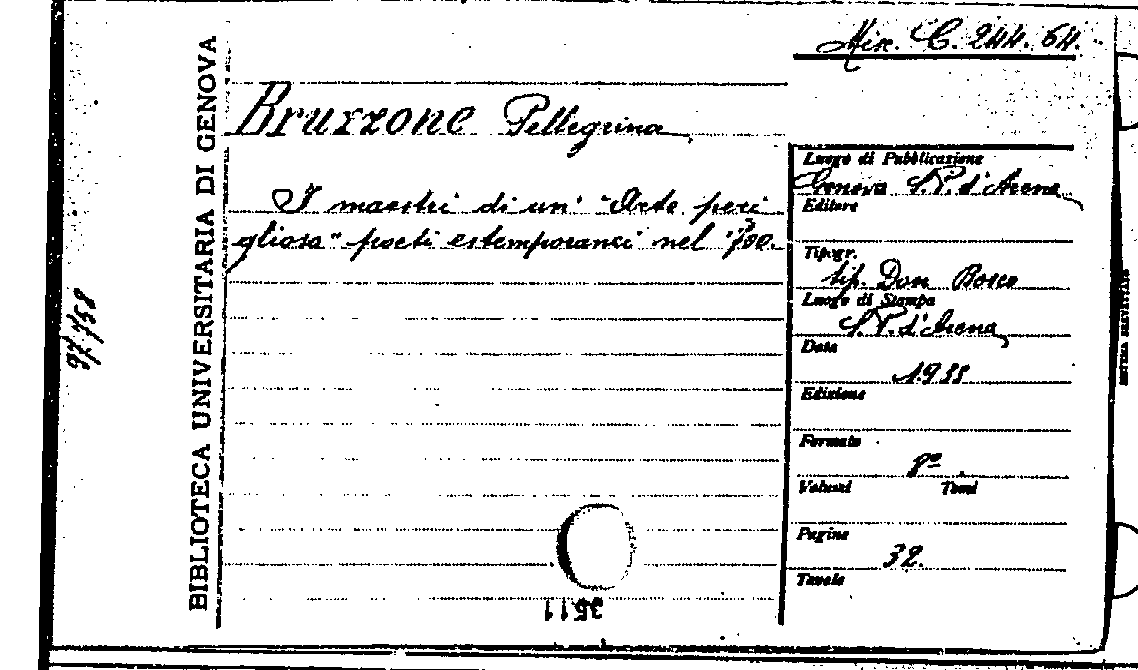 Mix. C. 244. 64.
BIBLIOTECA UNIVERSITARIA DI GENOVA
97.758
Bruzzone Pellegrina
I maestri di un' "Arte peri
gliosa" poeti estemporanei nel '700.
Luogo di Pubblicazione
Genova S.P. d'Arena
Editore
Tipogr.
tip. Don Bosco
Luogo di Stampa
S.P. d'Arena
Data
Edizione
Formato
8º
Volumi Tomi
Pagine
32.
Tavole
3511